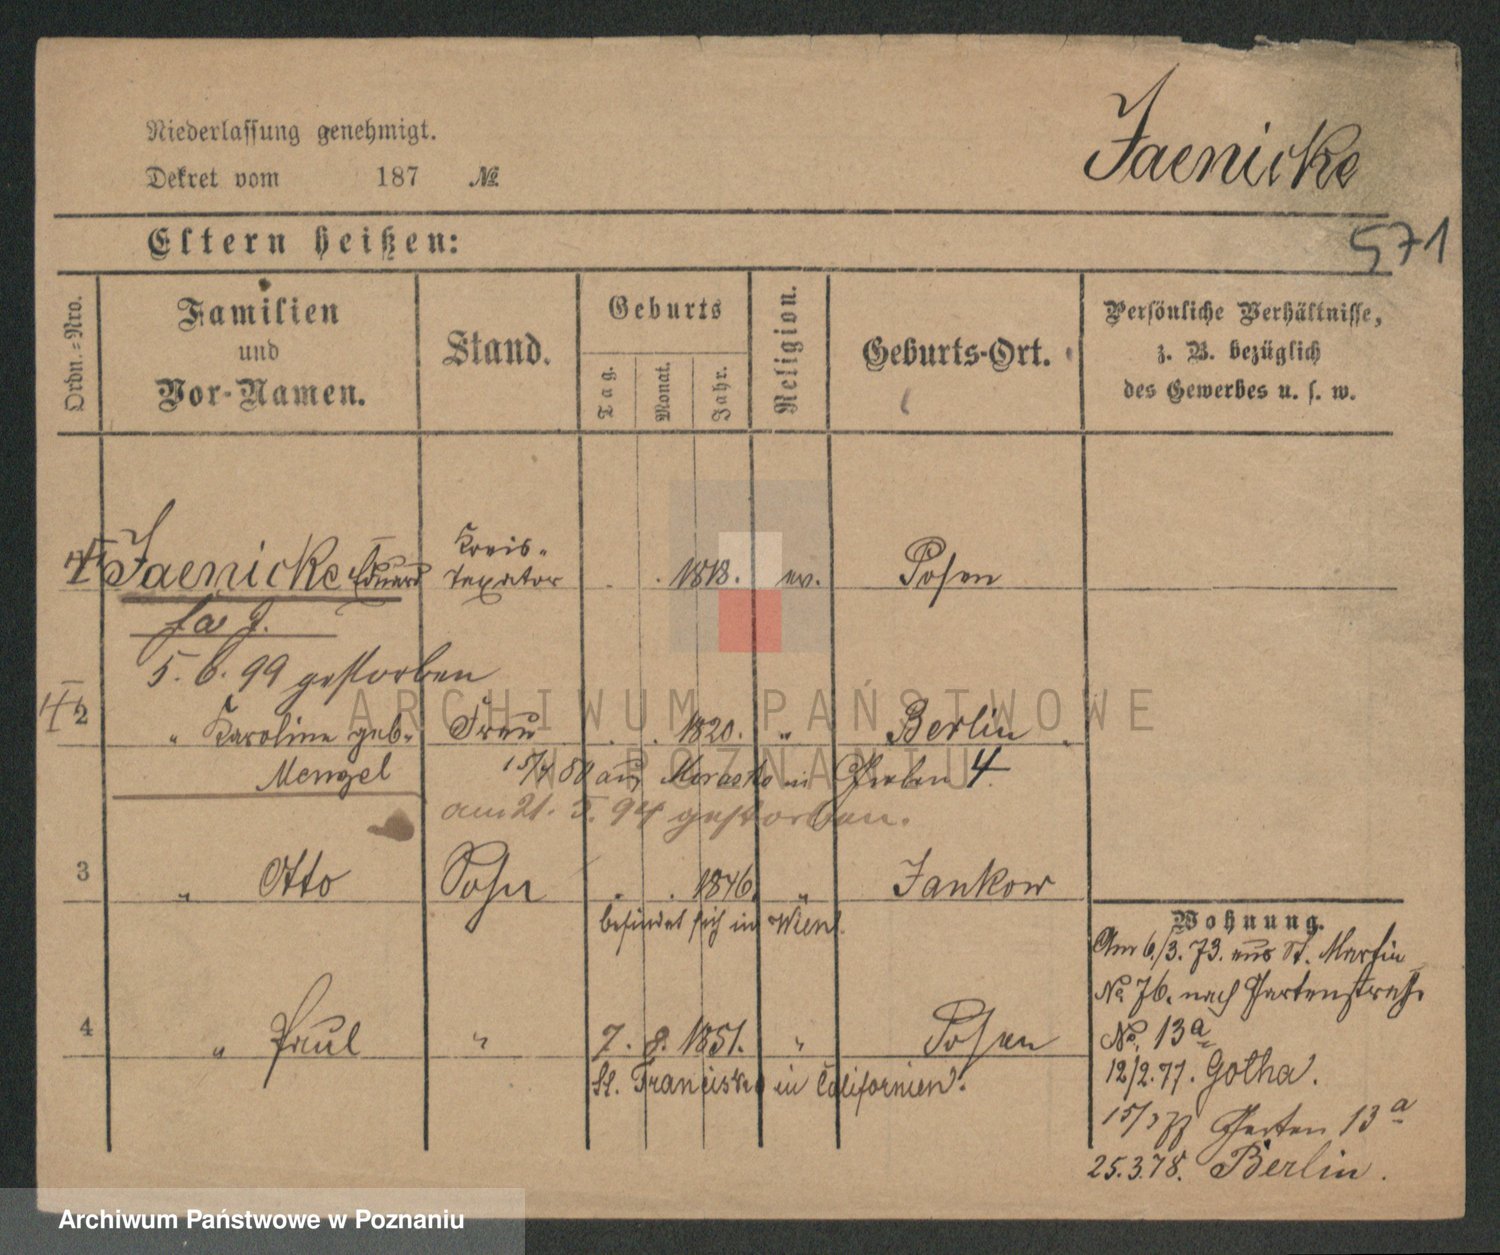 Niederlassung genehmigt.
Dekret vom 187 №
Jaenicke
571
Eltern heißen:
Ordn.-Nro.
Familien
und
Vor-Namen.
Stand.
Geburts
Tag.
Monat.
Jahr.
Religion.
Geburts-Ort.
Persönliche Verhältnisse,
z. B. bezüglich
des Gewerbes u. s. w.
Jaenicke Eduard Kreis-
Taxator 1818. ev. Posen
5. 6. 99 gestorben
2 " Karoline geb. Frau 1820. " Berlin
Mengel 15/4 80 aus in 4.
am 21. 5. 94 gestorben.
3 " Otto Sohn 1846. " Jankow
befindet sich in Wien.
4 " Paul " 7. 8. 1851. " Posen
St. Francisko in Californien.
Wohnung.
Am 6/3. 73. aus St. Martin
No 76. nach Gartenstraße
No. 13a
12/2. 77. Gotha.
15/ Garten 13a
25.3.78. Berlin.
ARCHIWUM PAŃSTWOWE
W POZNANIU
Archiwum Państwowe w Poznaniu